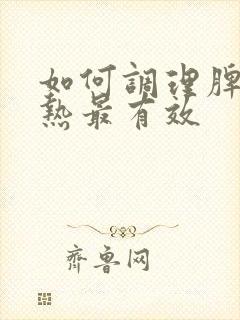 如何調理脾
熱最有效
齊鲁网